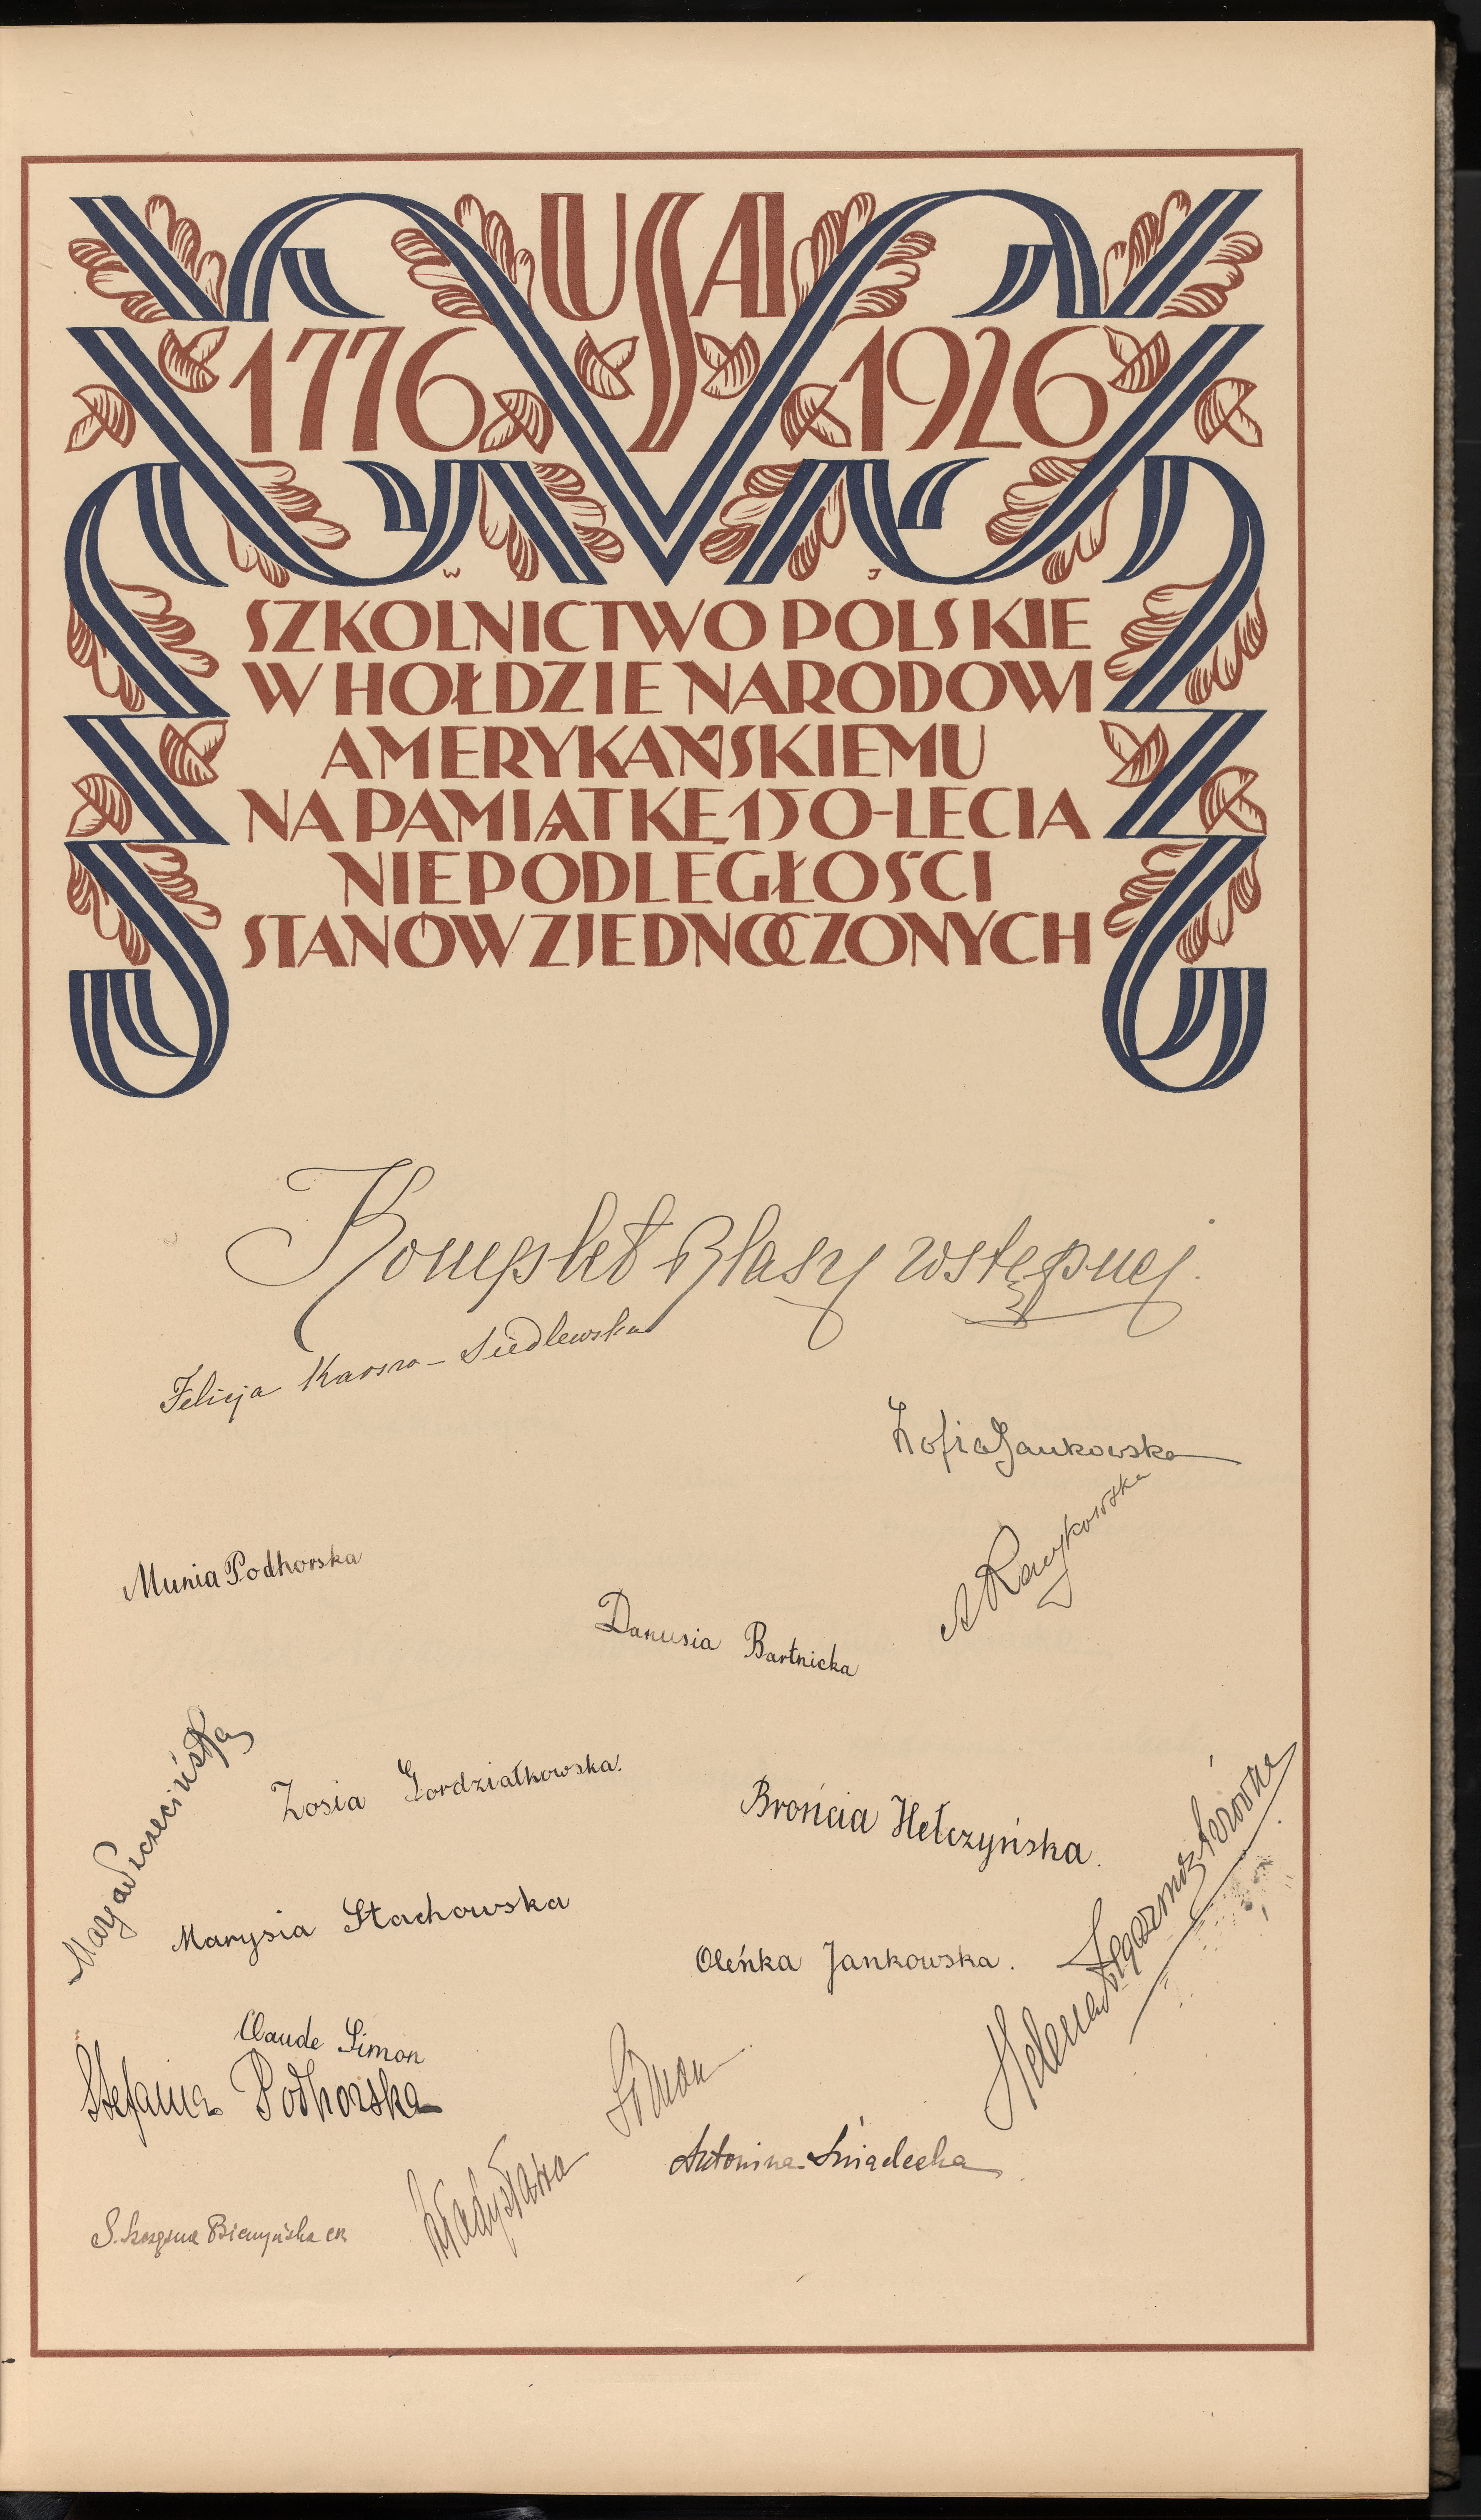 USA
1776 1926
W J
SZKOLNICTWO POLSKIE
W HOŁDZIE NARODOWI
AMERYKAŃSKIEMU
NA PAMIĄTKĘ 150-LECIA
NIEPODLEGŁOŚCI
STANÓW ZJEDNOCZONYCH
Komplet klasy wstępnej.
Felicja Karszo-Siedlewska
Zofia Jankowska
Munia Podhorska
Danusia Bartnicka
Marja Pszczecińska
Zosia Gordziałkowska.
Brońcia Hełczyńska.
Marysia Stachowska
Oleńka Jankowska.
Helena
Claude Simon
Stefania Podhorska
Władysława Siman
Antonina Śniadecka